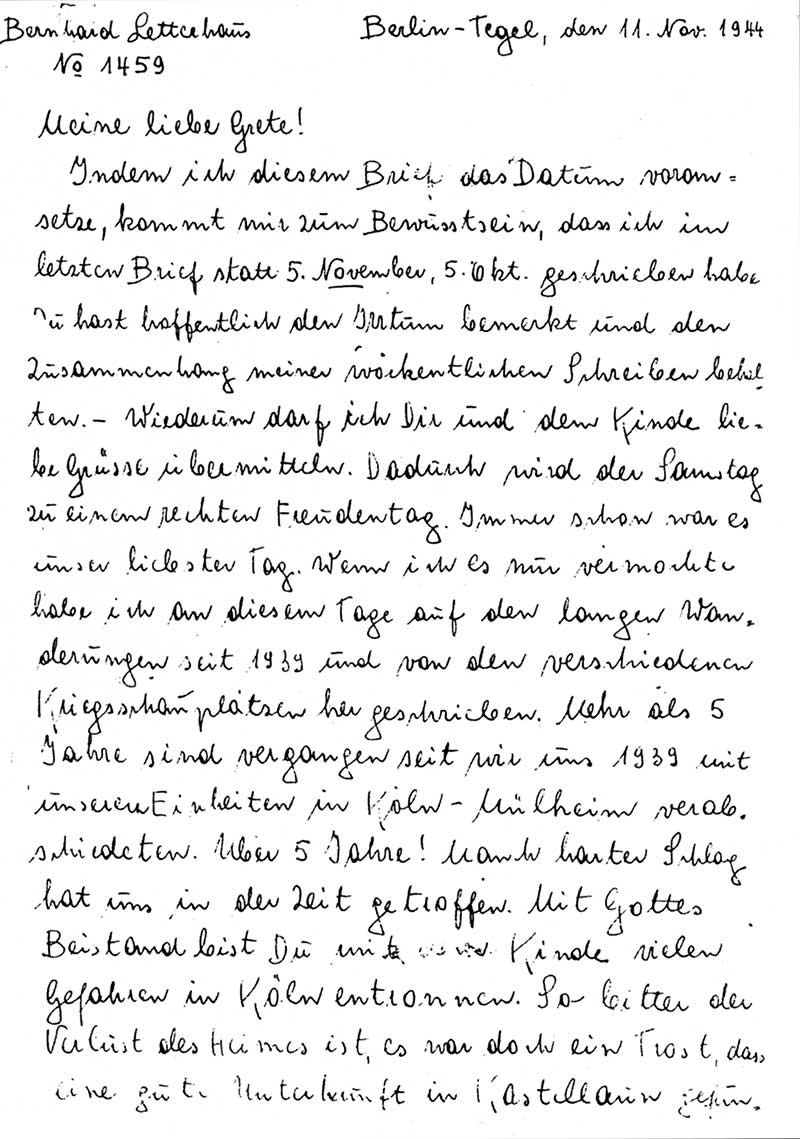 Bernhard Letterhaus
No 1459
Berlin-Tegel, den 11. Nov. 1944
Meine liebe Grete!
Indem ich diesem Brief das Datum voran=
setze, kommt mir zum Bewusstsein, dass ich im
letzten Brief statt 5. November, 5. Okt. geschrieben habe
Du hast hoffentlich den Irrtum bemerkt und den
Zusammenhang meiner wöchentlichen Schreiben behal
ten. - Wiederum darf ich Dir und dem Kinde lie-
be Grüsse übermitteln. Dadurch wird der Samstag
zu einem rechten Freudentag. Immer schon war es
unser liebster Tag. Wenn ich es nur vermochte
habe ich an diesem Tage auf den langen Wan-
derungen seit 1939 und von den verschiedenen
Kriegsschauplätzen her geschrieben. Mehr als 5
Jahre sind vergangen seit wir uns 1939 mit
unseren Einheiten in Köln-Mülheim verab-
schiedeten. Über 5 Jahre! Manch harter Schlag
hat uns in der Zeit getroffen. Mit Gottes
Beistand bist Du mit Kinde vielen
Gefahren in Köln entronnen. So bitter der
Verlust des Heimes ist, es war doch ein Trost, dass
eine gute Unterkunft in Kastellaun gefun-